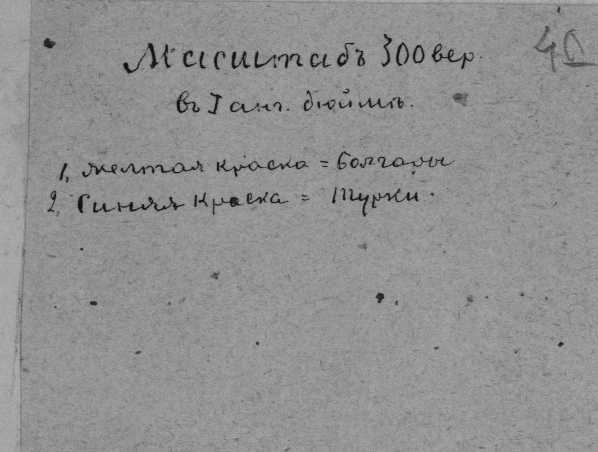 Масштабъ 300 вер.
40
въ 1 анг. дюймѣ.
1, желтая краска = Болгары
2, Синяя краска = Турки.